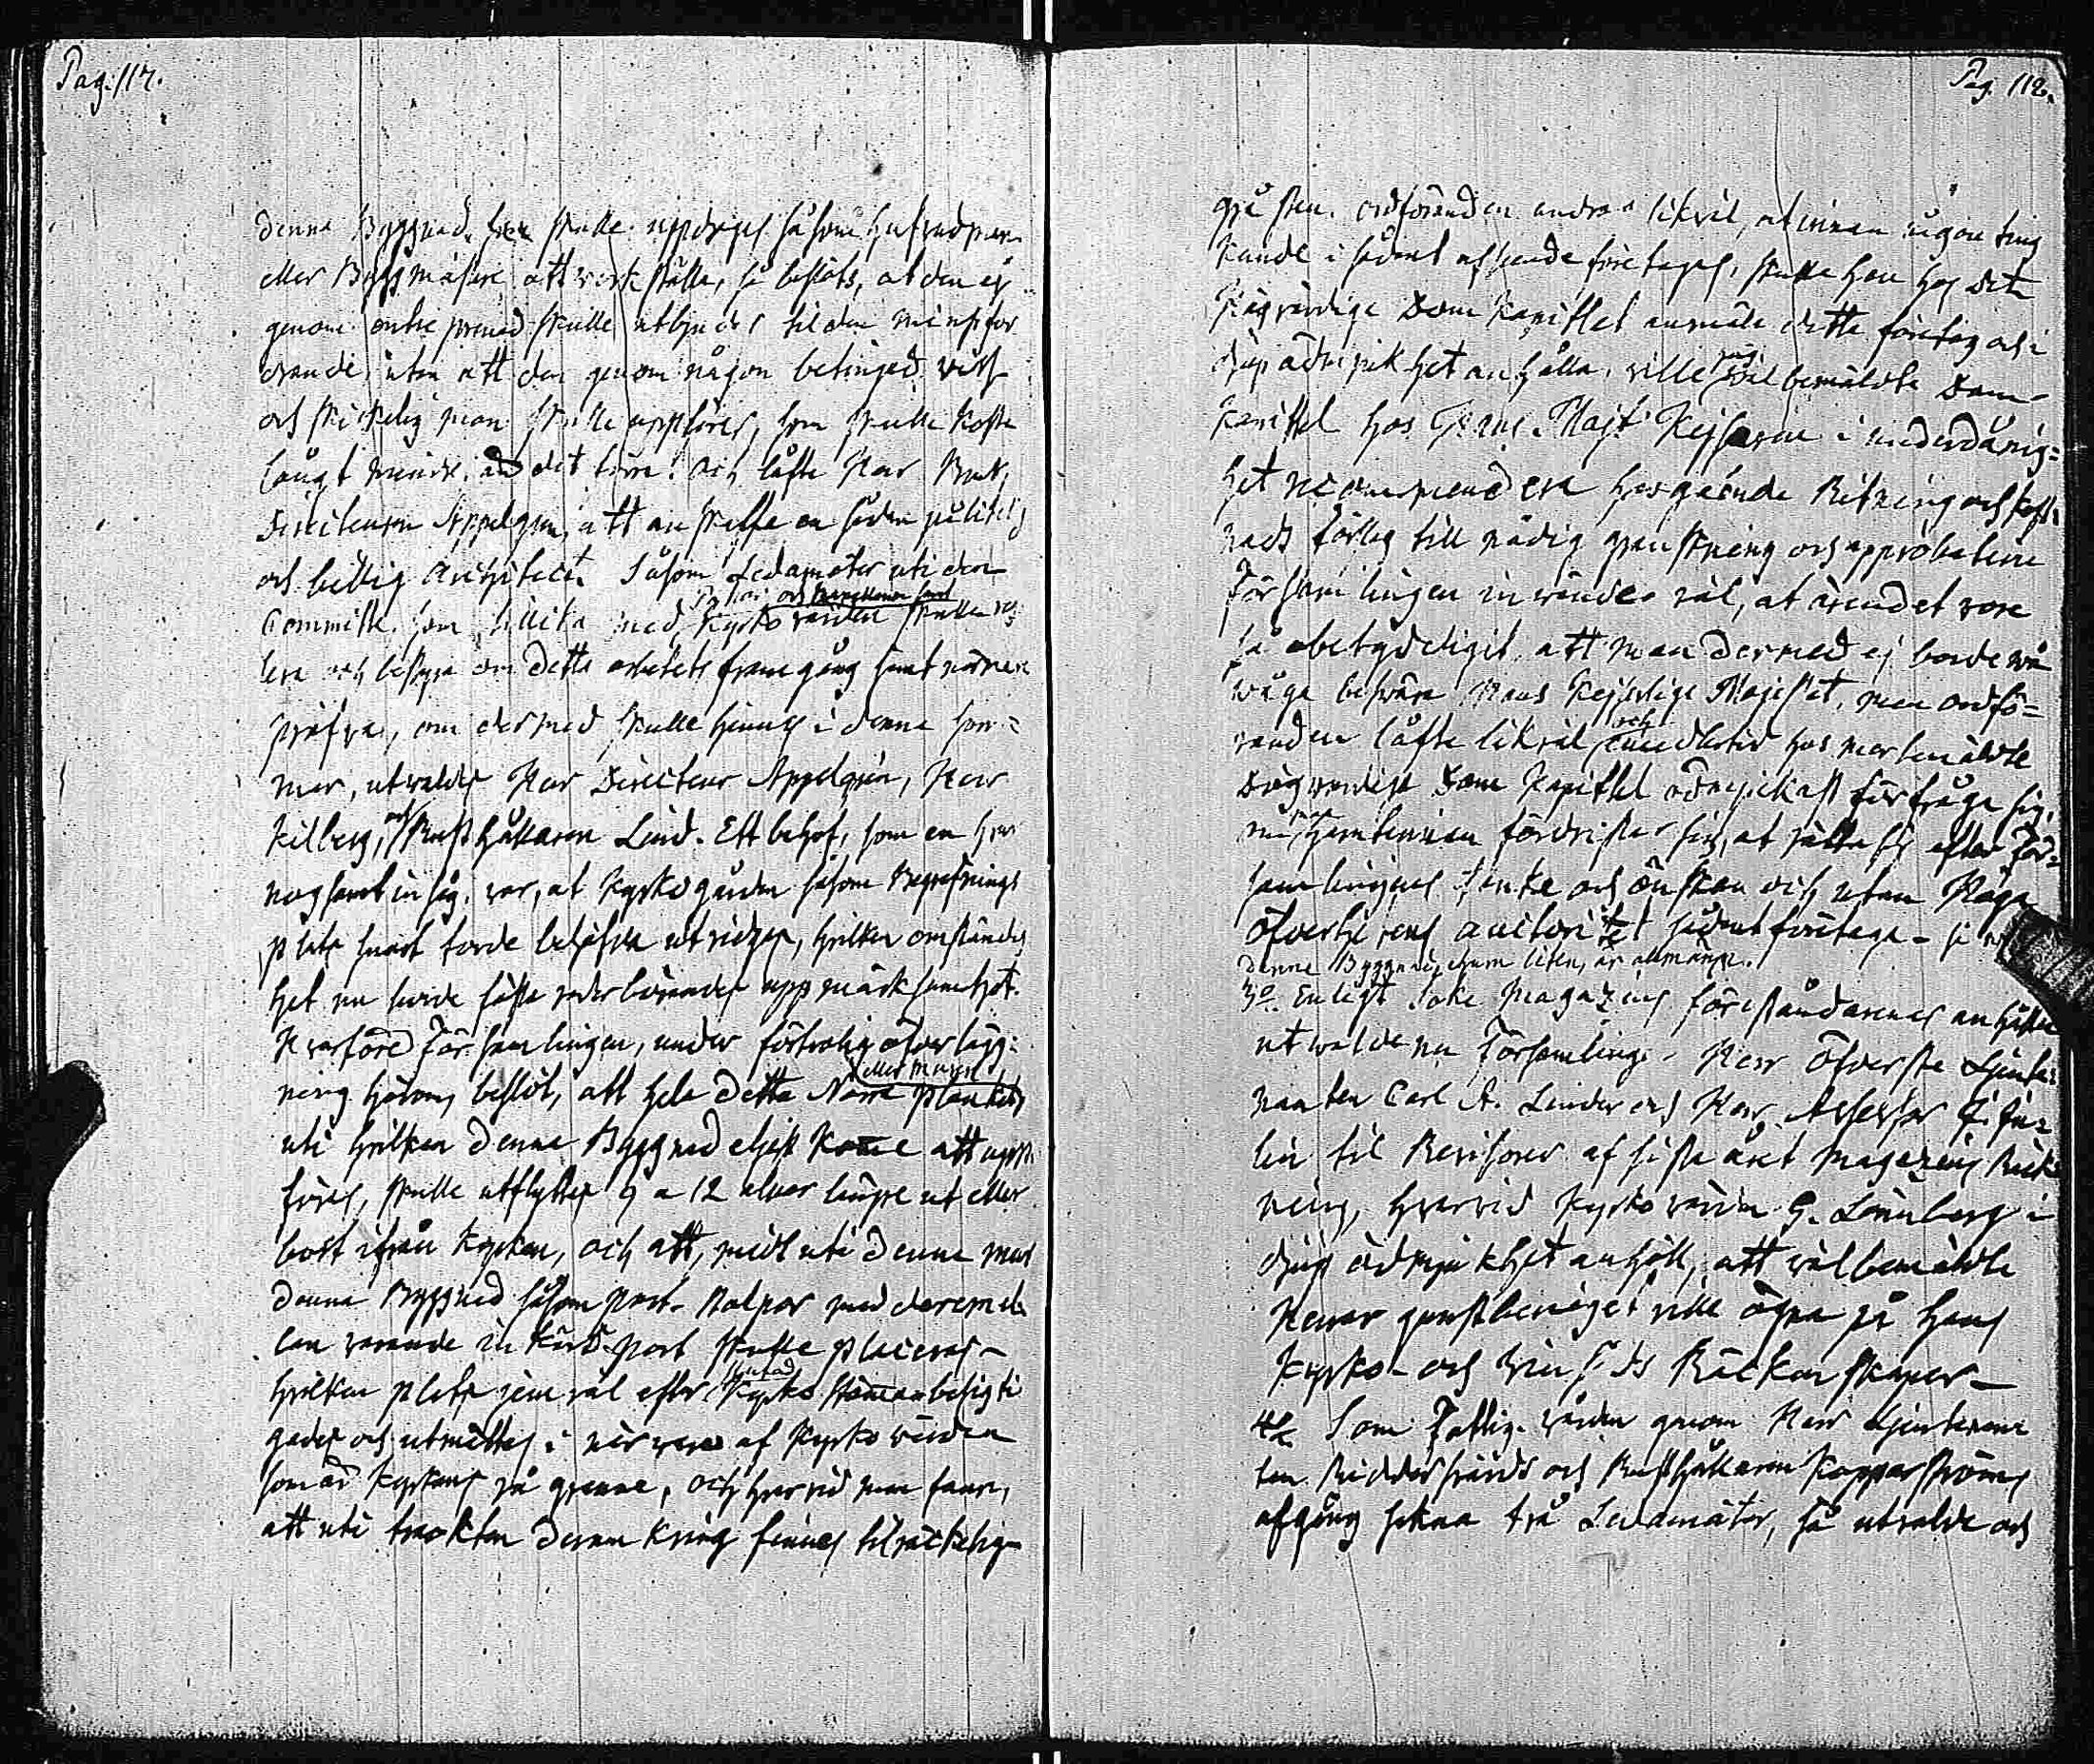 Pag. 117.
denna Byggnad, skulle uppdrages såsom hufvudman
eller Byggmästare att verkställa, så beslöts, at den ej
genom entreprenad skulle utbjudas til den minstfor
drande, utan att den genom någon betingad viss
och skickelig man skulle uppföres, som skulle kosta
långt mindre än det förra: och låfte Herr Bruks
Directeuren Appelgren, att anskaffa en sådan pålitelig
och billig Architect. Såsom Ledamöter uti den
och Kapellanen samt
Committé, som tillika med Kyrkovärden skulle
och besörja om detta arbetets framgång samt närmare
pröfva, om dermed skulle hinnas i denna som=
mar, utvaldes Herr Directeur Appelgren, Herr
Kilberg, och Rusthållaren Lind. Ett behof, som en hvar
nogsamt insåg, var, at Kyrkogården såsom Begrafnings
plats snart torde behöfva utvidgas, hvilken omständig
het nu borde fästa vederbörandes uppmärksamhet.
Hvarföre Församlingen, under förtrolig öfverlägg=
eller Muren
ning härom, beslöt, att hela detta Norra Planket
uti hvilken denna Byggnad eljest komme att upp
föres, skulle utflyttas 9 a 12 alnar längre ut eller
bort ifrån Kyrkan, och att, midt uti denna mur
denna Byggnad såsom port-stolpar med deremel
lan varande inkörs-port skulle placeras
hvilken plats jemväl efter Kyrkostämman besigti
gades och utmättes i närvaro af Kyrkovärden
som är Kyrkans på granne, och hvarvid man fann,
att uti trakten deromkring finnes tilräckelig
Pag. 118.
gråsten. Ordföranden androg likväl, at innan någon ting
kunde i sådant afseende företages, skulle han hos Det
Högvördige Dom Kapitlet anmäla detta företag och i
djup ödmjukhet anhålla, ville välbemäldte Dom
Kapittel hos Hans Majt Kejsaren i underdånig=
het recommendera hosgående Ritning och kost=
nads förslag till nådig granskning och approbation
Församlingen invände väl, at ärendet vore
så obetydeligit, att man dermed ej borde
våga besvära Hans Kejserliga Majestet, men ordfö=
randen låfte likväl och imedlertid hos merbemäldte
Högvördiga Dom Kapittel ödmjukast förfråga sig,
församlingen fördristar sig, at rätta sig efter För=
samlingens tanke och önskan och utan Höga
Öfverhetens auctoritet sådant företaga – så
denna Byggnad, ehuru liten, är allmän.
3o Enligt Soke Magazins föreståndarenes anhållan
utvalde nu Församlingen Herr Öfverste Löjtn=
nanten Carl A. Linder och Herr Assessor
lin til Revisorer af sista året Magazins Räk
ning, hvarvid Kyrkovärden G. Lönnberg i
djup ödmjukhet anhöll, att välbemäldte
Herrar gunstbenäget ville ögna på hans
Kyrko- och Räkenskaper –
4o Som Fattig-vården genom Herr Löjtenan
ten Riddersvärds och Rusthållaren Kopparströms
afgång sakna två Ledamöter, så utvalde och